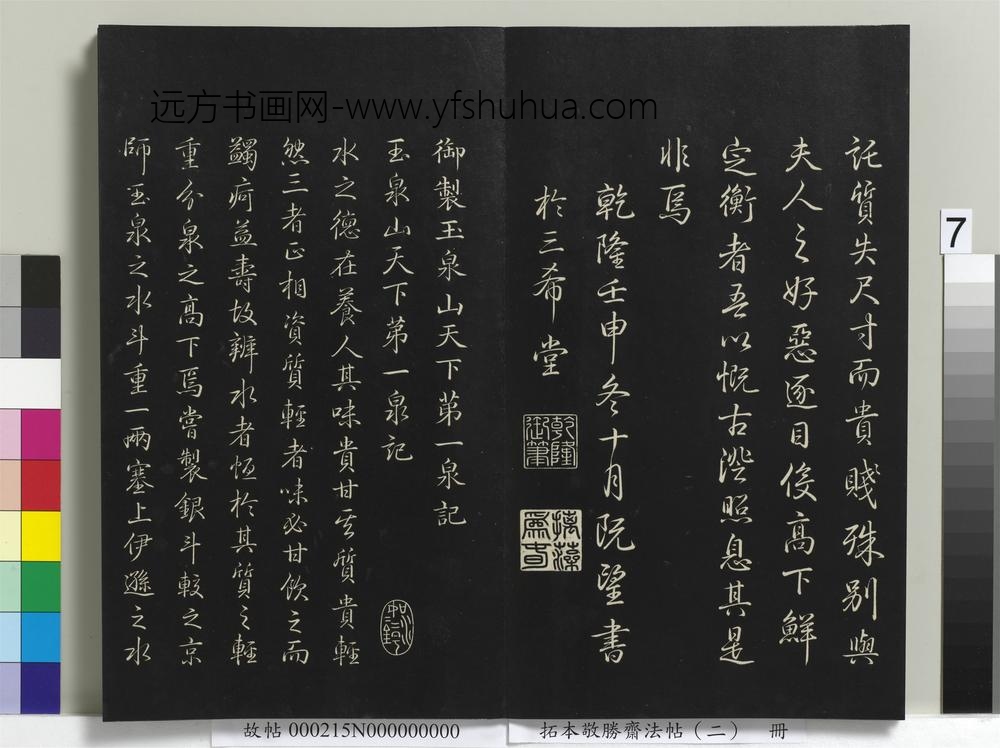 远方书画网-www.yfshuhua.com
託質失尺寸而貴賤殊别與
夫人之好惡逐目侫高下鮮
定衡者吾以慨古澄照息其是
非焉
乾隆壬申冬十月既望書
於三希堂
乾隆
御筆
摛藻
為春
御製玉泉山天下第一泉記
玉泉山天下第一泉記
水之德在養人其味貴甘其質貴輕
然三者正相資質輕者味必甘飲之而
蠲疴益壽故辨水者恒於其質之輕
重分泉之高下焉嘗製銀斗較之京
師玉泉之水斗重一兩塞上伊遜之水
7
故帖 000215N000000000
拓本敬勝齋法帖（二） 冊